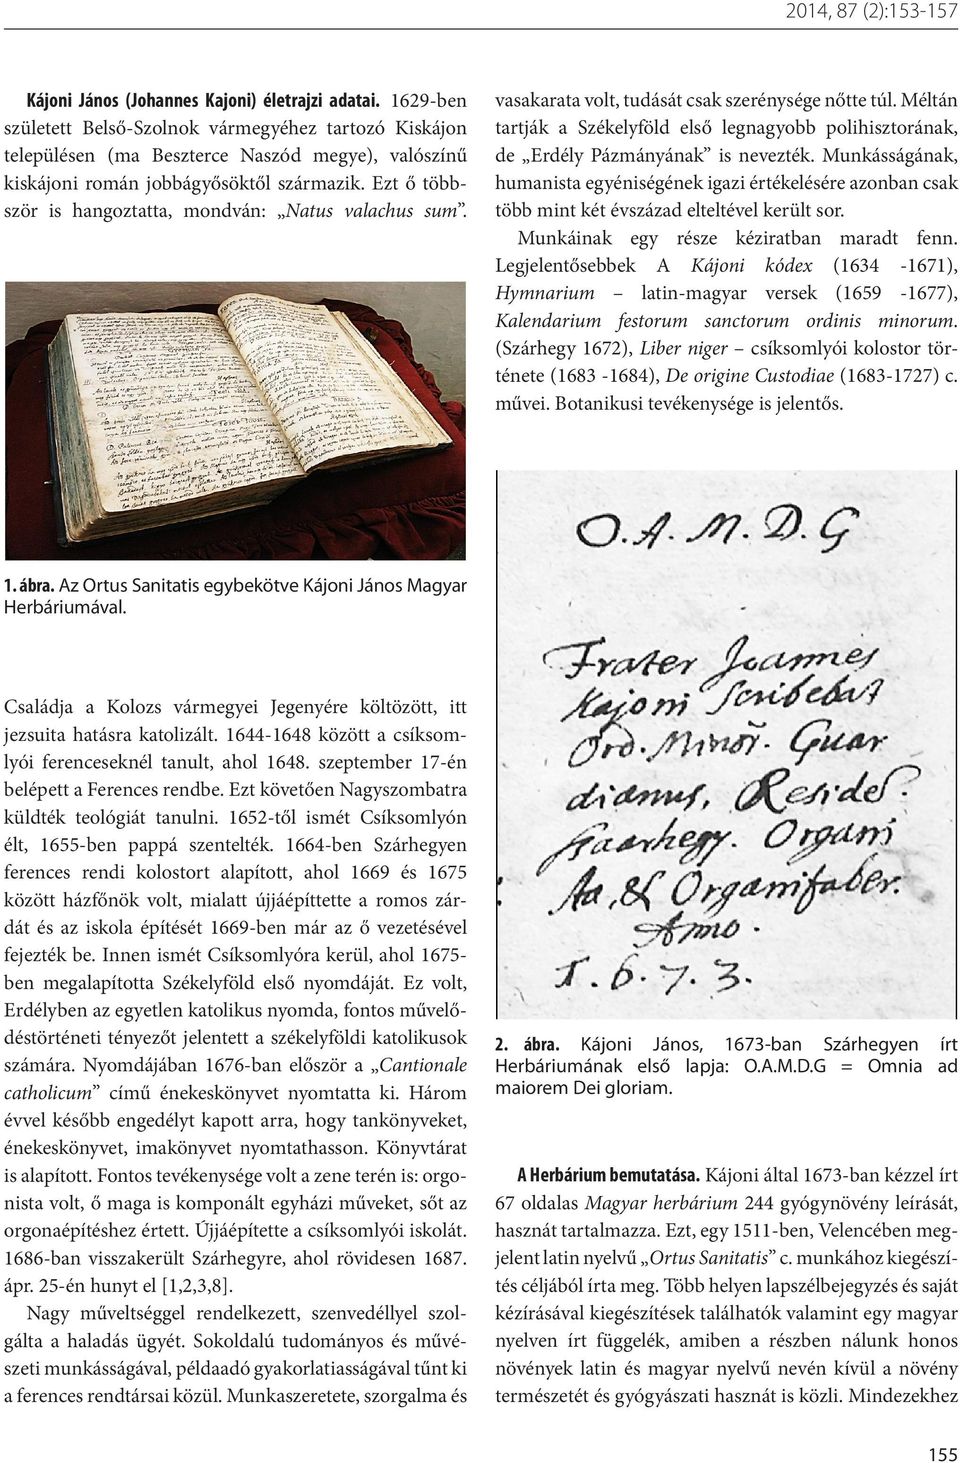 2014, 87 (2):153-157
Kájoni János (Johannes Kajoni) életrajzi adatai. 1629-ben
született Belső-Szolnok vármegyéhez tartozó Kiskájon
településen (ma Beszterce Naszód megye), valószínű
kiskájoni román jobbágyősöktől származik. Ezt ő több-
ször is hangoztatta, mondván: „Natus valachus sum”.
1. ábra. Az Ortus Sanitatis egybekötve Kájoni János Magyar
Herbáriumával.
Családja a Kolozs vármegyei Jegenyére költözött, itt
jezsuita hatásra katolizált. 1644-1648 között a csíksom-
lyói ferenceseknél tanult, ahol 1648. szeptember 17-én
belépett a Ferences rendbe. Ezt követően Nagyszombatra
küldték teológiát tanulni. 1652-től ismét Csíksomlyón
élt, 1655-ben pappá szentelték. 1664-ben Szárhegyen
ferences rendi kolostort alapított, ahol 1669 és 1675
között házfőnök volt, mialatt újjáépíttette a romos zár-
dát és az iskola építését 1669-ben már az ő vezetésével
fejezték be. Innen ismét Csíksomlyóra kerül, ahol 1675-
ben megalapította Székelyföld első nyomdáját. Ez volt,
Erdélyben az egyetlen katolikus nyomda, fontos művelő-
déstörténeti tényezőt jelentett a székelyföldi katolikusok
számára. Nyomdájában 1676-ban először a „Cantionale
catholicum” című énekeskönyvet nyomtatta ki. Három
évvel később engedélyt kapott arra, hogy tankönyveket,
énekeskönyvet, imakönyvet nyomtathasson. Könyvtárat
is alapított. Fontos tevékenysége volt a zene terén is: orgo-
nista volt, ő maga is komponált egyházi műveket, sőt az
orgonaépítéshez értett. Újjáépítette a csíksomlyói iskolát.
1686-ban visszakerült Szárhegyre, ahol rövidesen 1687.
ápr. 25-én hunyt el [1,2,3,8].
Nagy műveltséggel rendelkezett, szenvedéllyel szol-
gálta a haladás ügyét. Sokoldalú tudományos és művé-
szeti munkásságával, példaadó gyakorlatiasságával tűnt ki
a ferences rendtársai közül. Munkaszeretete, szorgalma és
vasakarata volt, tudását csak szerénysége nőtte túl. Méltán
tartják a Székelyföld első legnagyobb polihisztorának,
de „Erdély Pázmányának” is nevezték. Munkásságának,
humanista egyéniségének igazi értékelésére azonban csak
több mint két évszázad elteltével került sor.
Munkáinak egy része kéziratban maradt fenn.
Legjelentősebbek A Kájoni kódex (1634 -1671),
Hymnarium – latin-magyar versek (1659 -1677),
Kalendarium festorum sanctorum ordinis minorum.
(Szárhegy 1672), Liber niger – csíksomlyói kolostor tör-
ténete (1683 -1684), De origine Custodiae (1683-1727) c.
művei. Botanikusi tevékenysége is jelentős.
O.A.M.D.G
Frater Joannes
Kajoni Scribebat
Ord. Minor̃. Guar
dianus, Reside.
Szarhegy. Organi
sta, & Organifaber.
Anno.
1.6.7.3.
2. ábra. Kájoni János, 1673-ban Szárhegyen írt
Herbáriumának első lapja: O.A.M.D.G = Omnia ad
maiorem Dei gloriam.
A Herbárium bemutatása. Kájoni által 1673-ban kézzel írt
67 oldalas Magyar herbárium 244 gyógynövény leírását,
hasznát tartalmazza. Ezt, egy 1511-ben, Velencében meg-
jelent latin nyelvű „Ortus Sanitatis” c. munkához kiegészí-
tés céljából írta meg. Több helyen lapszélbejegyzés és saját
kézírásával kiegészítések találhatók valamint egy magyar
nyelven írt függelék, amiben a részben nálunk honos
növények latin és magyar nyelvű nevén kívül a növény
természetét és gyógyászati hasznát is közli. Mindezekhez
155